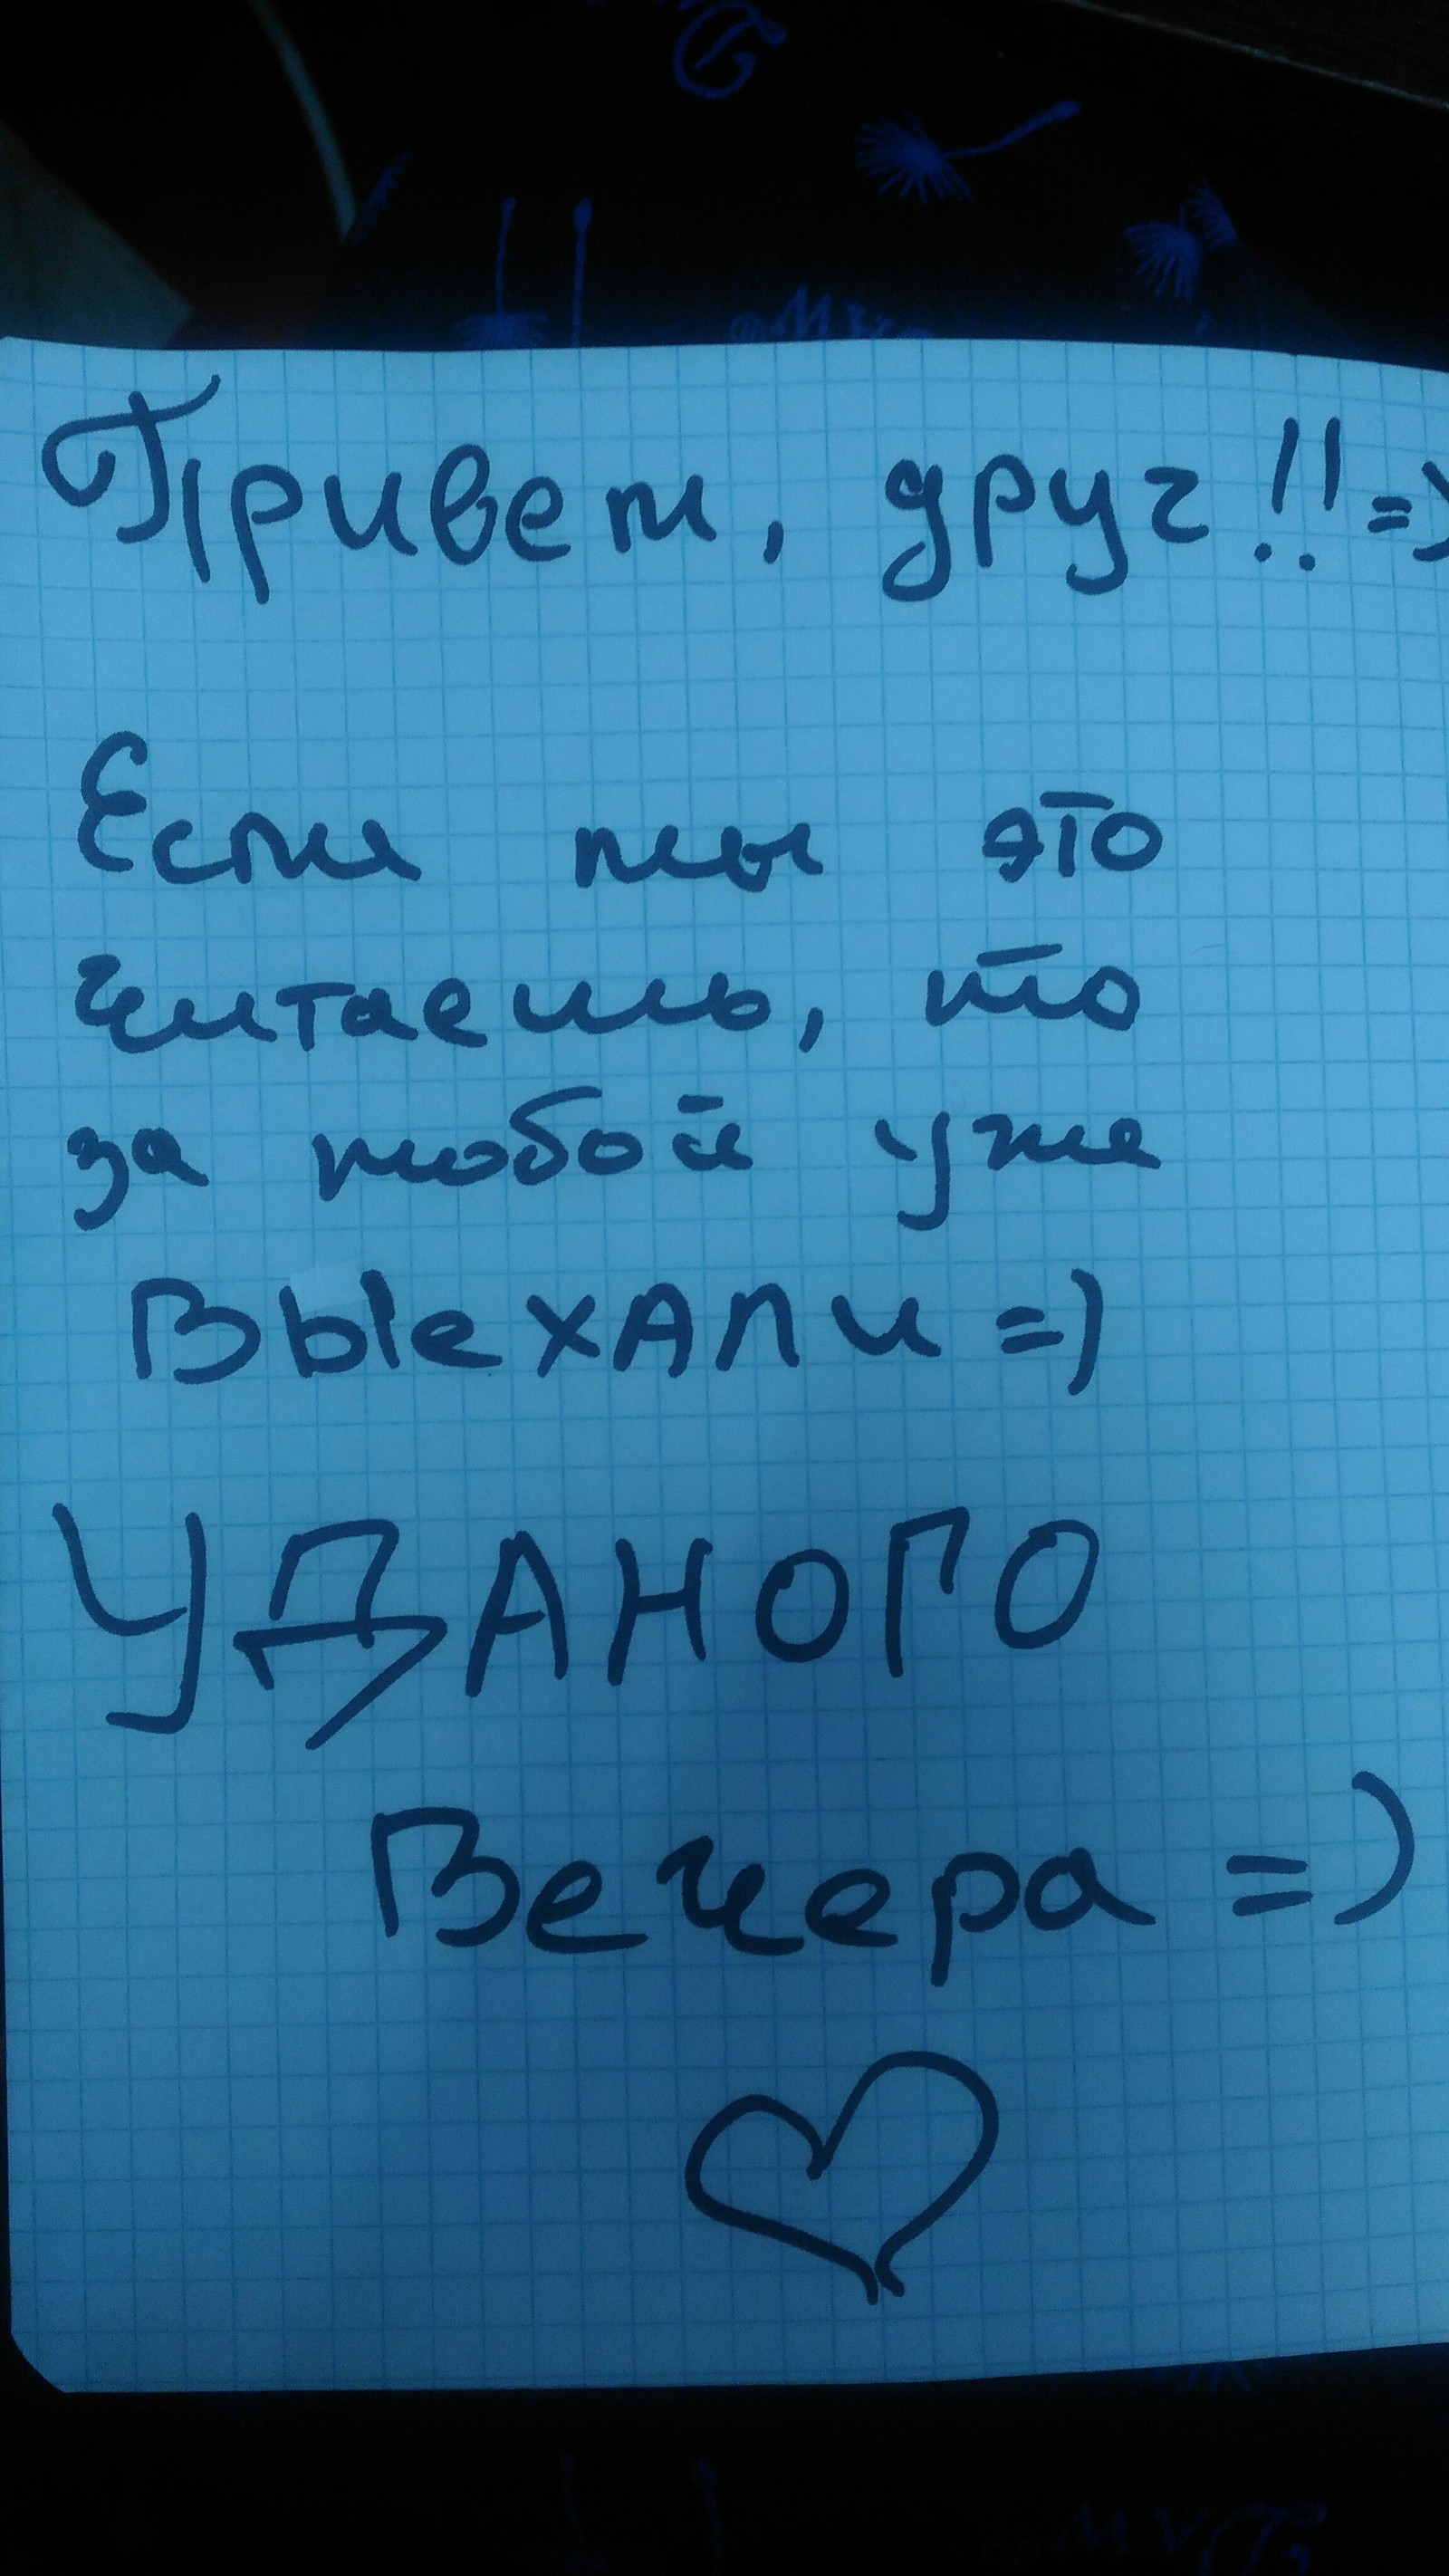 Привет, друг!! =)
Если ты это
читаешь, то
за тобой уже
выехали =)
УДАНОГО
Вечера =)